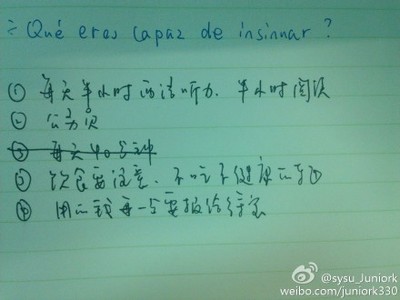 ¿Qué eres capaz de insinnar?
① 每天半小时西语听力. 半小时阅读
② 公务员
③ 每天40分钟
③ 饮食要注意. 不吃不健康的东西
④ 用的钱每一分要报给
@sysu_Juniork
weibo.com/juniork330